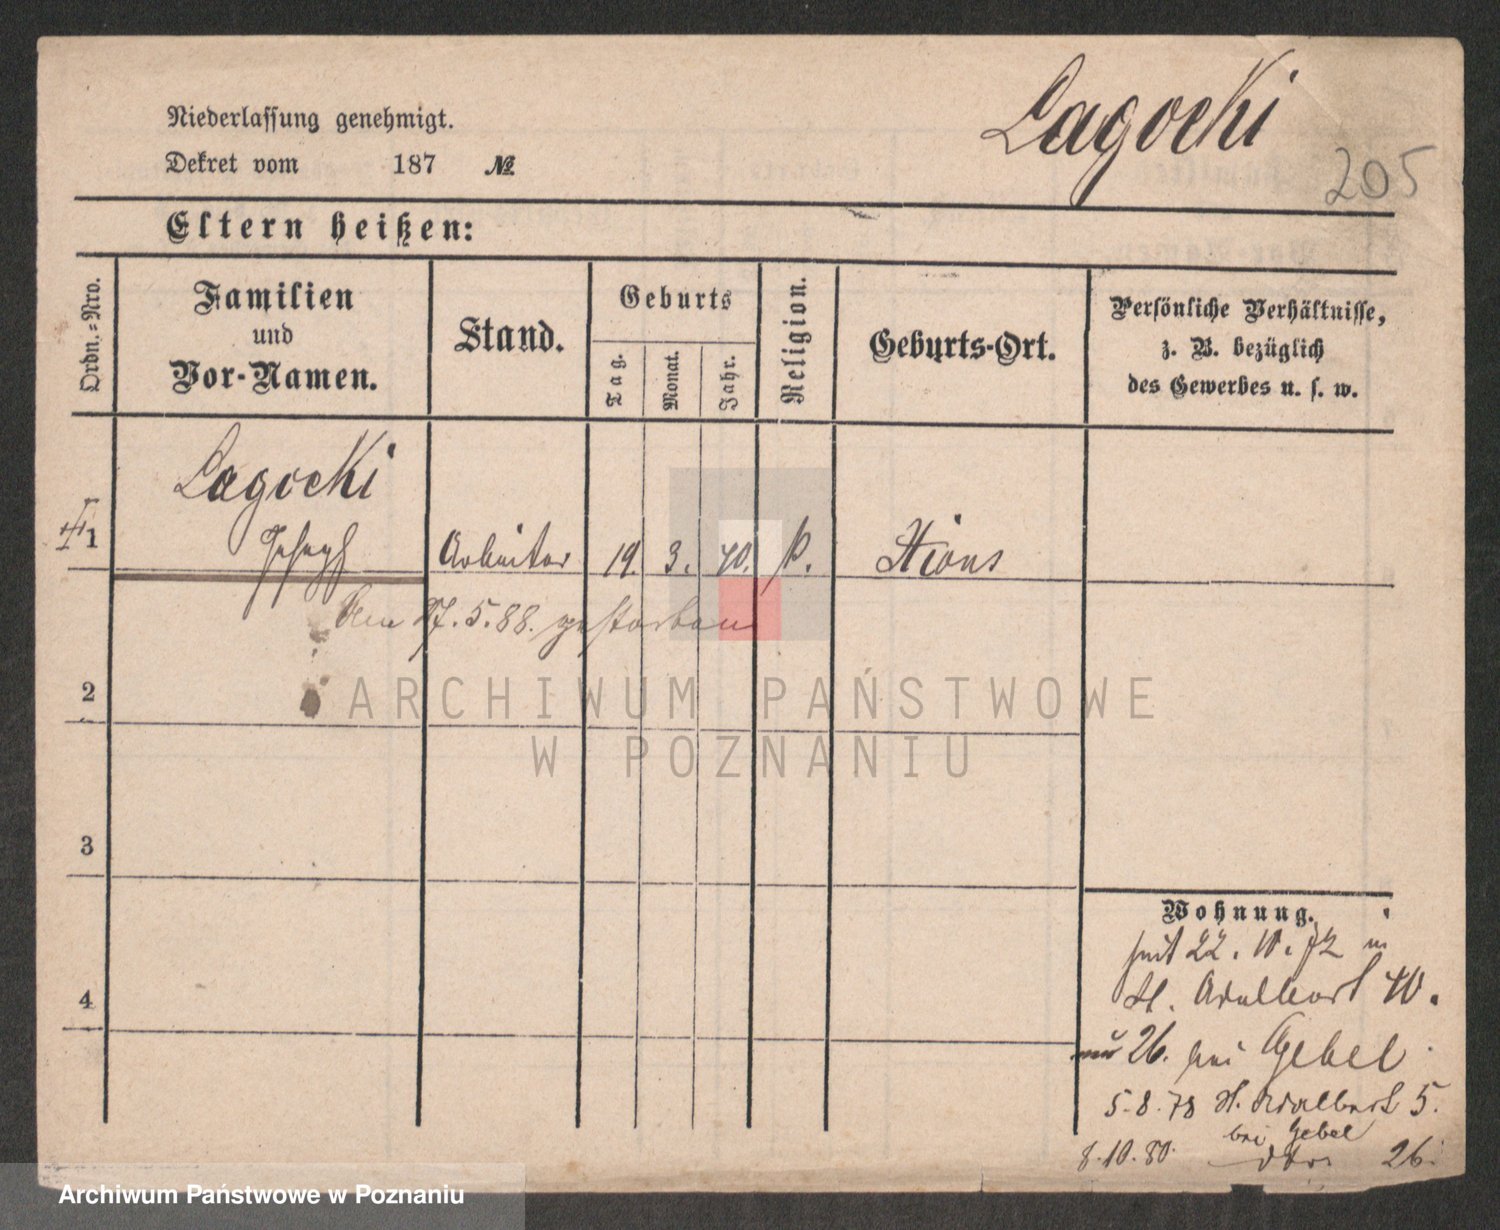 Lagocki
205
Niederlassung genehmigt.
Dekret vom 187 №
Eltern heißen:
Ordn.=Nro.
Familien
und
Vor-Namen.
Stand.
Geburts
Tag.
Monat.
Jahr.
Religion.
Geburts-Ort.
Persönliche Verhältnisse,
z. B. bezüglich
des Gewerbes u. s. w.
Lagocki
1 Joseph Arbeiter 19. 3. 40. k. Xions
den 27.5.88. gestorben
2
3
4
Wohnung.
seit 22. 10. 72 in
St. Adalbert 40.
26. bei Gebel
5.8.78 St. Adalbert 5.
bei Gebel
8.10.80. dto 26.
ARCHIWUM PAŃSTWOWE
W POZNANIU
Archiwum Państwowe w Poznaniu